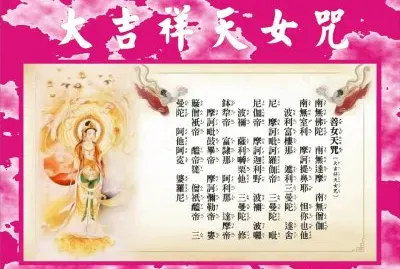 大吉祥天女咒
善女天咒(大吉祥天女咒)
南無佛陀 南無達摩 南無僧伽
南無室利 摩訶提鼻耶 怛你也他
波利富樓那 遮利三曼陀 達舍
尼 摩訶毗訶羅伽帝 三曼陀 毗
尼伽帝 摩訶迦利野 波禰 波囉
波禰 薩利嚩栗他 三曼陀 修
鉢犂帝 富隸那 阿利那 達摩帝
摩訶毗鼓畢帝 摩訶彌勒帝 婁
簸僧祇帝 醯帝簁 僧祇醯帝 三
曼陀 阿他阿㝹 婆羅尼